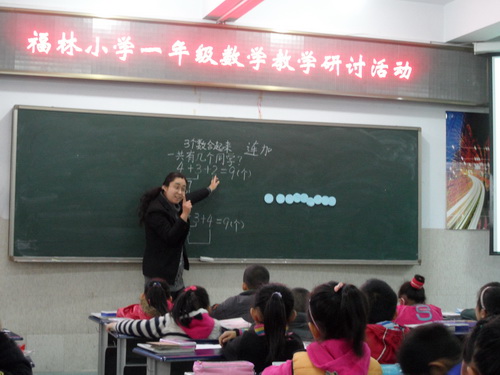 福林小学一年级数学教学研讨活动
3个数合起来 连加
一共有几个同学?
4+3+2=9(个)
3+4=9(个)